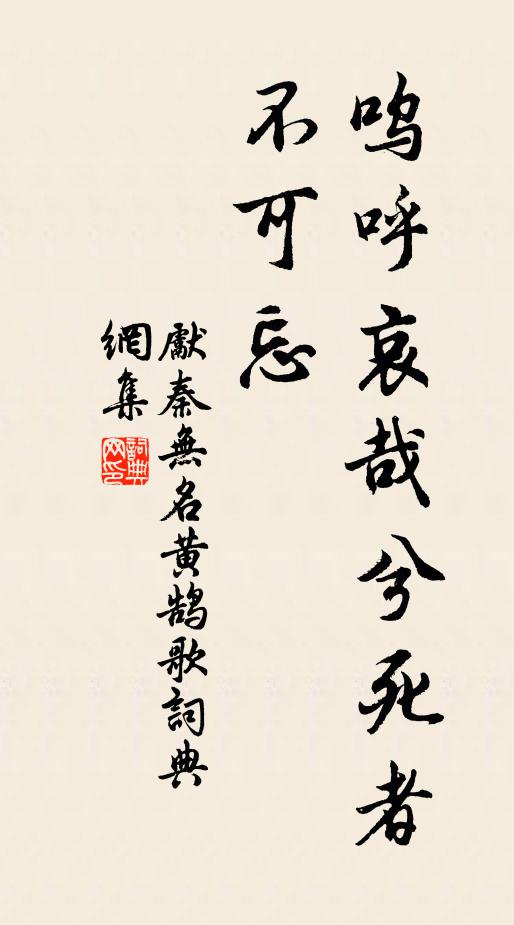 嗚呼哀哉兮死者
不可忘
獻秦無名黃鵠歌詞典
網集
詞典
網印